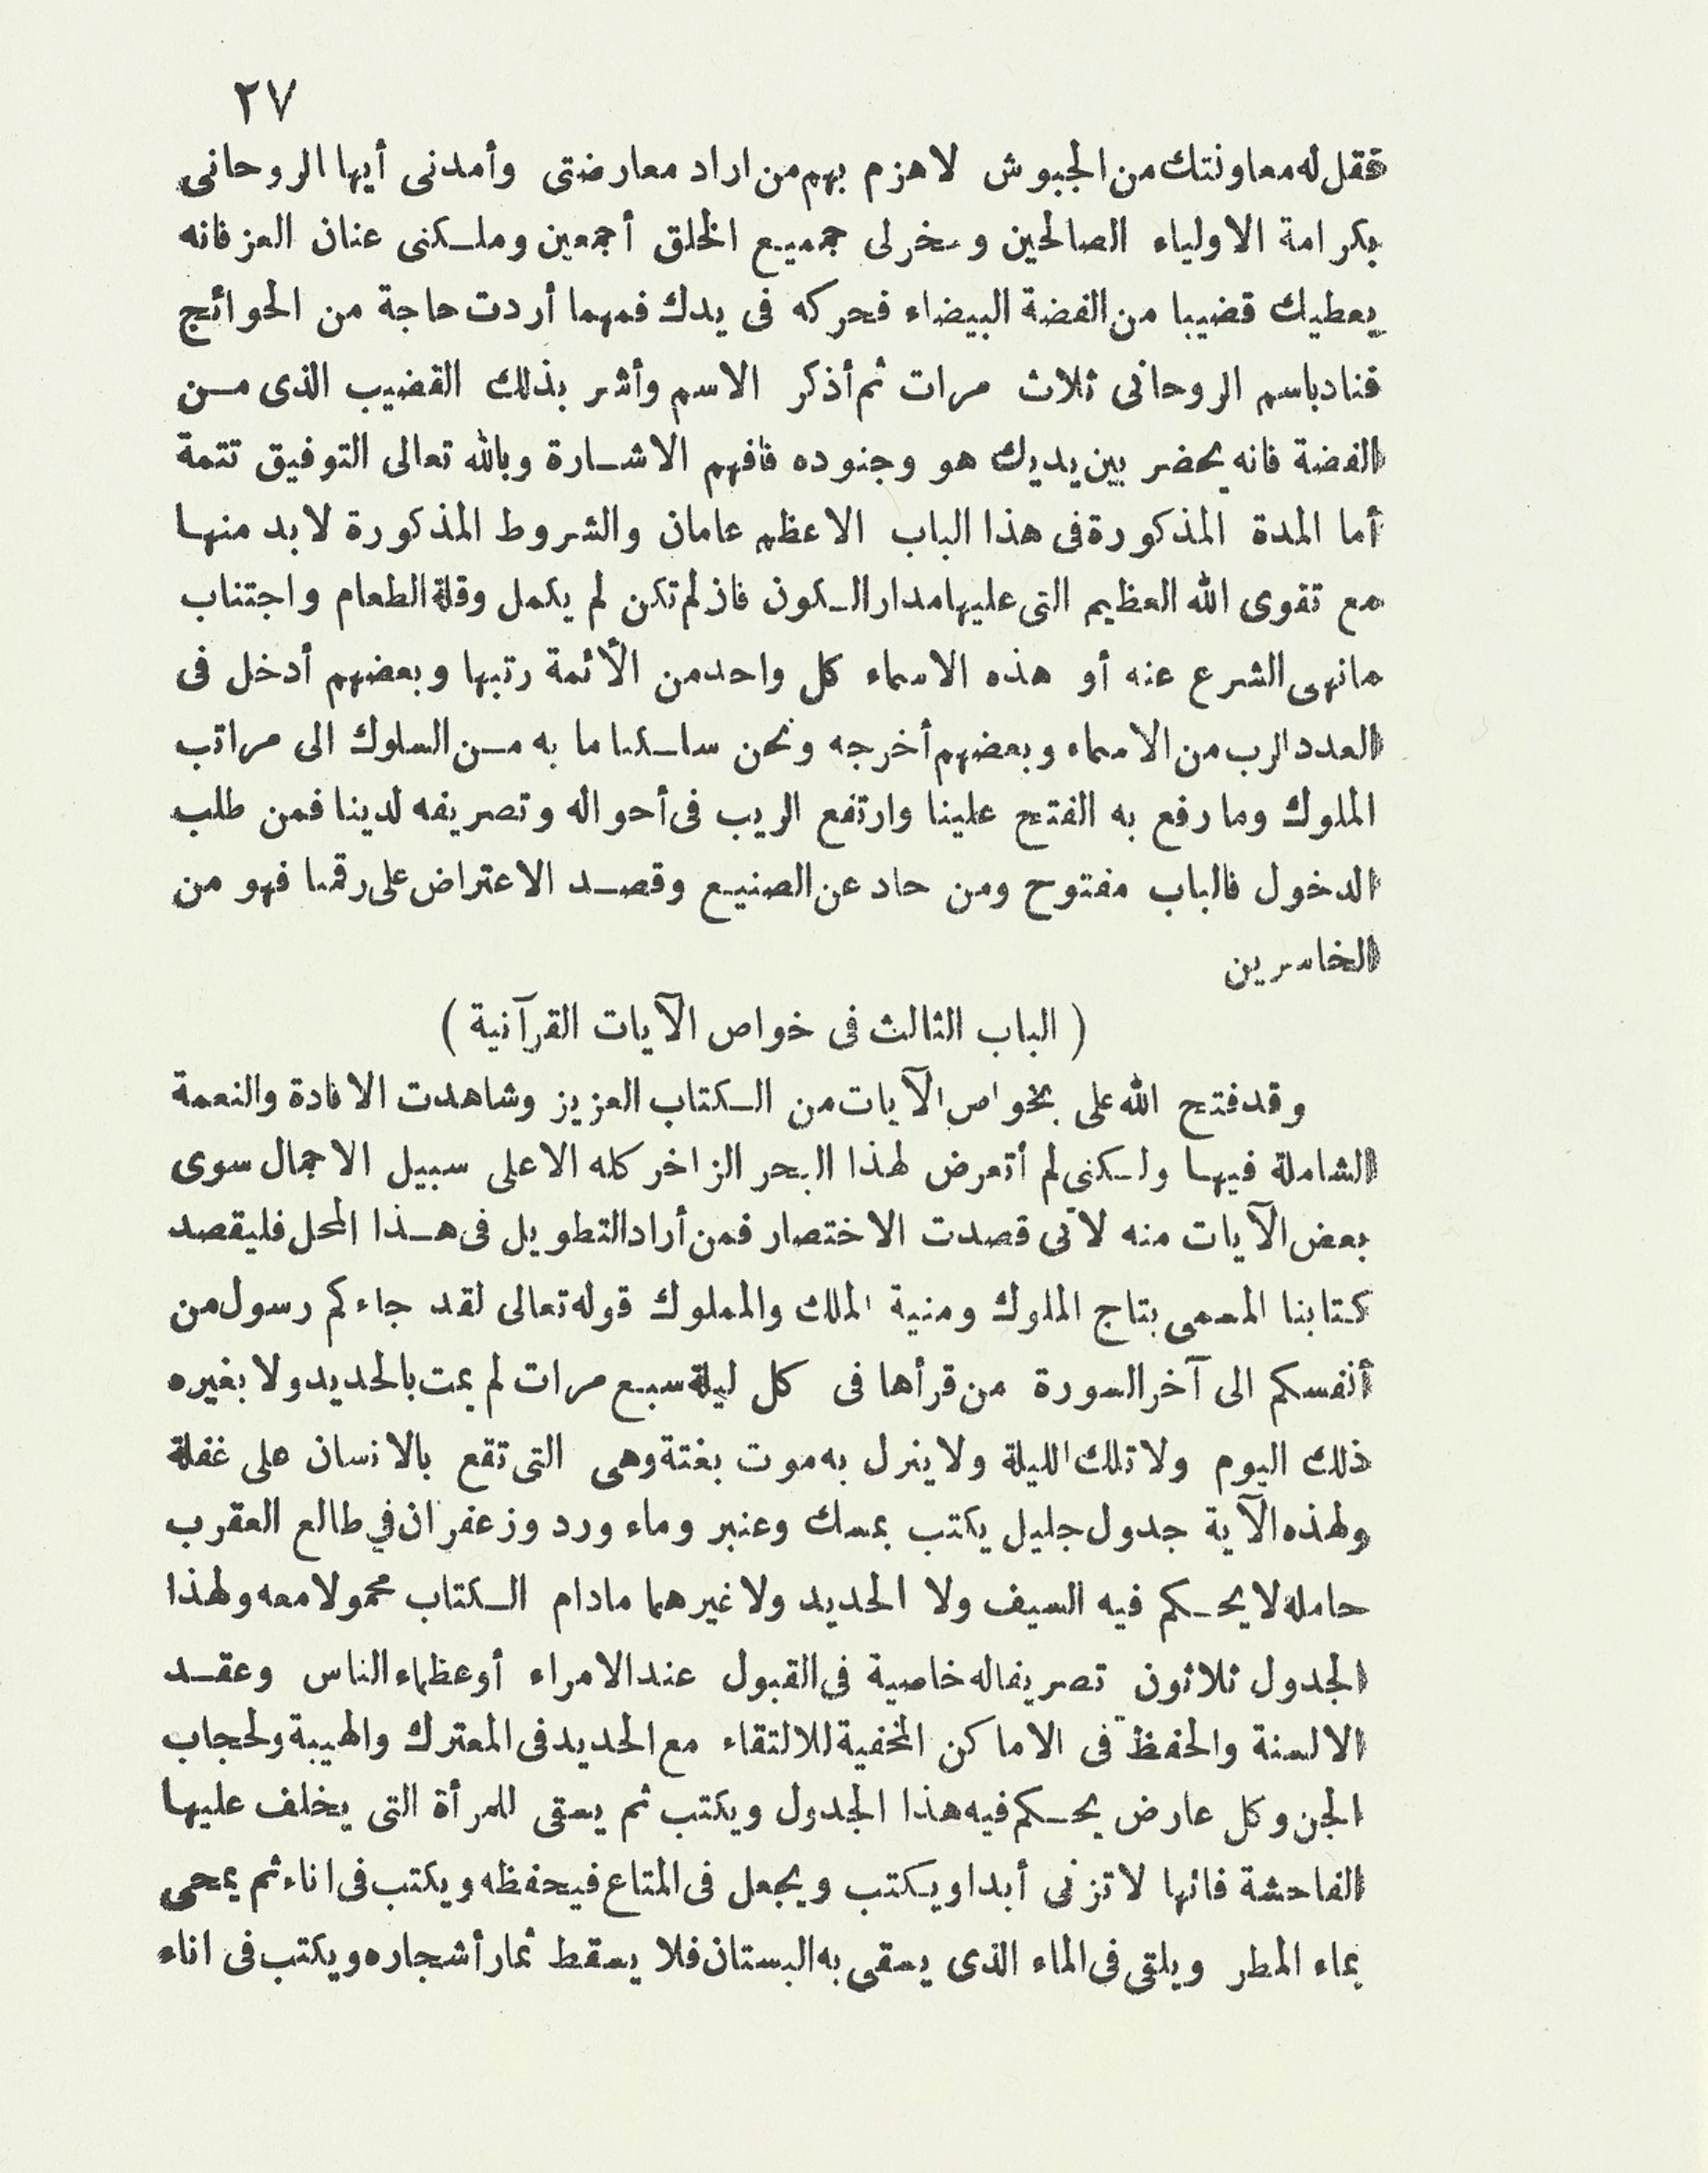 ٢٧
فقل له معاونتك من الجيوش لاهزم بهم من اراد معارضتى وأمدنى أيها الروحانى
بكرامة الاولياء الصالحين وسخر لى جميع الخلق أجمعين وملكنى عنان العز فانه
يعطيك قضيبا من الفضة البيضاء فحركه فى يدك فمهما أردت حاجة من الحوائج
فناد باسم الروحانى ثلاث مرات ثم أذكر الاسم وأشر بذلك القضيب الذى من
الفضة فانه يحضر بين يديك هو وجنوده فافهم الاشارة وبالله تعالى التوفيق تتمة
أما المدة المذكورة فى هذا الباب الاعظم عامان والشروط المذكورة لا بد منها
مع تقوى الله العظيم التى عليها مدار الكون فان لم تكن لم يكمل وقلة الطعام واجتناب
مانهى الشرع عنه أو هذه الاسماء كل واحد من الأئمة رتبها وبعضهم أدخل فى
العدد الرب من الاسماء وبعضهم أخرجه ونحن سلكنا ما به من السلوك الى مراتب
الملوك وما رفع به الفتح علينا وارتفع الريب فى أحواله وتصريفه لدينا فمن طلب
الدخول فالباب مفتوح ومن حاد عن الصنيع وقصد الاعتراض على رقمنا فهو من
الخاسرين
( الباب الثالث فى خواص الآيات القرآنية )
وقد فتح الله على بخواص الآيات من الكتاب العزيز وشاهدت الافادة والنعمة
الشاملة فيها ولكنى لم أتعرض لهذا البحر الزاخر كله الا على سبيل الاجمال سوى
بعض الآيات منه لانى قصدت الاختصار فمن أراد التطويل فى هذا المحل فليقصد
كتابنا المسمى بتاج الملوك ومنية الملك والمملوك قوله تعالى لقد جاءكم رسول من
أنفسكم الى آخر السورة من قرأها فى كل ليلة سبع مرات لم يمت بالحديد ولا بغيره
ذلك اليوم ولا تلك الليلة ولا ينزل به موت بغتة وهى التى تقع بالانسان على غفلة
ولهذه الآية جدول جليل يكتب بمسك وعنبر وماء ورد وزعفران في طالع العقرب
حامله لا يحكم فيه السيف ولا الحديد ولا غيرهما مادام الكتاب محمولا معه ولهذا
الجدول ثلاثون تصريفا له خاصية فى القبول عند الامراء أو عظماء الناس وعقد
الالسنة والحفظ فى الاماكن المخفية للالتقاء مع الحديد فى المعترك والهيبة ولحجاب
الجن وكل عارض يحكم فيه هذا الجدول ويكتب ثم يسقى للمرأة التى يخلف عليها
الفاحشة فانها لا تزنى أبدا ويكتب ويجعل فى المتاع فيحفظه ويكتب فى اناء ثم يمحى
بماء المطر ويلقى فى الماء الذى يسقى به البستان فلا يسقط ثمار أشجاره ويكتب فى اناء